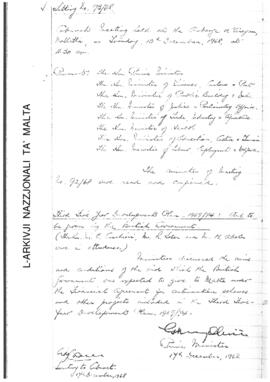 Sitting No. 73/68.
Cabinet Meeting held at the Auberge
Valletta, on 1968, at
Present: The Hon. Prime Minister
The Hon. Minister of Finance, Customs & Port
The Hon. Minister of Public Building & Works
The Hon. Minister of Justice & Parliamentary Affairs
The Hon. Minister of Trade, Industry & Agriculture
The Hon. Minister of Health
The Hon. Minister of Education, Culture & Tourism
The Hon. Minister of Labour, Employment & Welfare.
The minutes of Meeting
No. 72/68 were read and confirmed.
Third Five Year Development Plan, 1969/74: Aid to
be given by the British Government
in attendance.)
Ministers discussed the
and conditions of the aid which the British
Government was expected to give to Malta under
the Financial Agreement for
and other projects included in the Third Five-
Year Development Plan, 1969/74.
Prime Minister
17th December, 1968
Secretary to Cabinet
17th December, 1968
L-ARKIVJI NAZZJONALI TA' MALTA